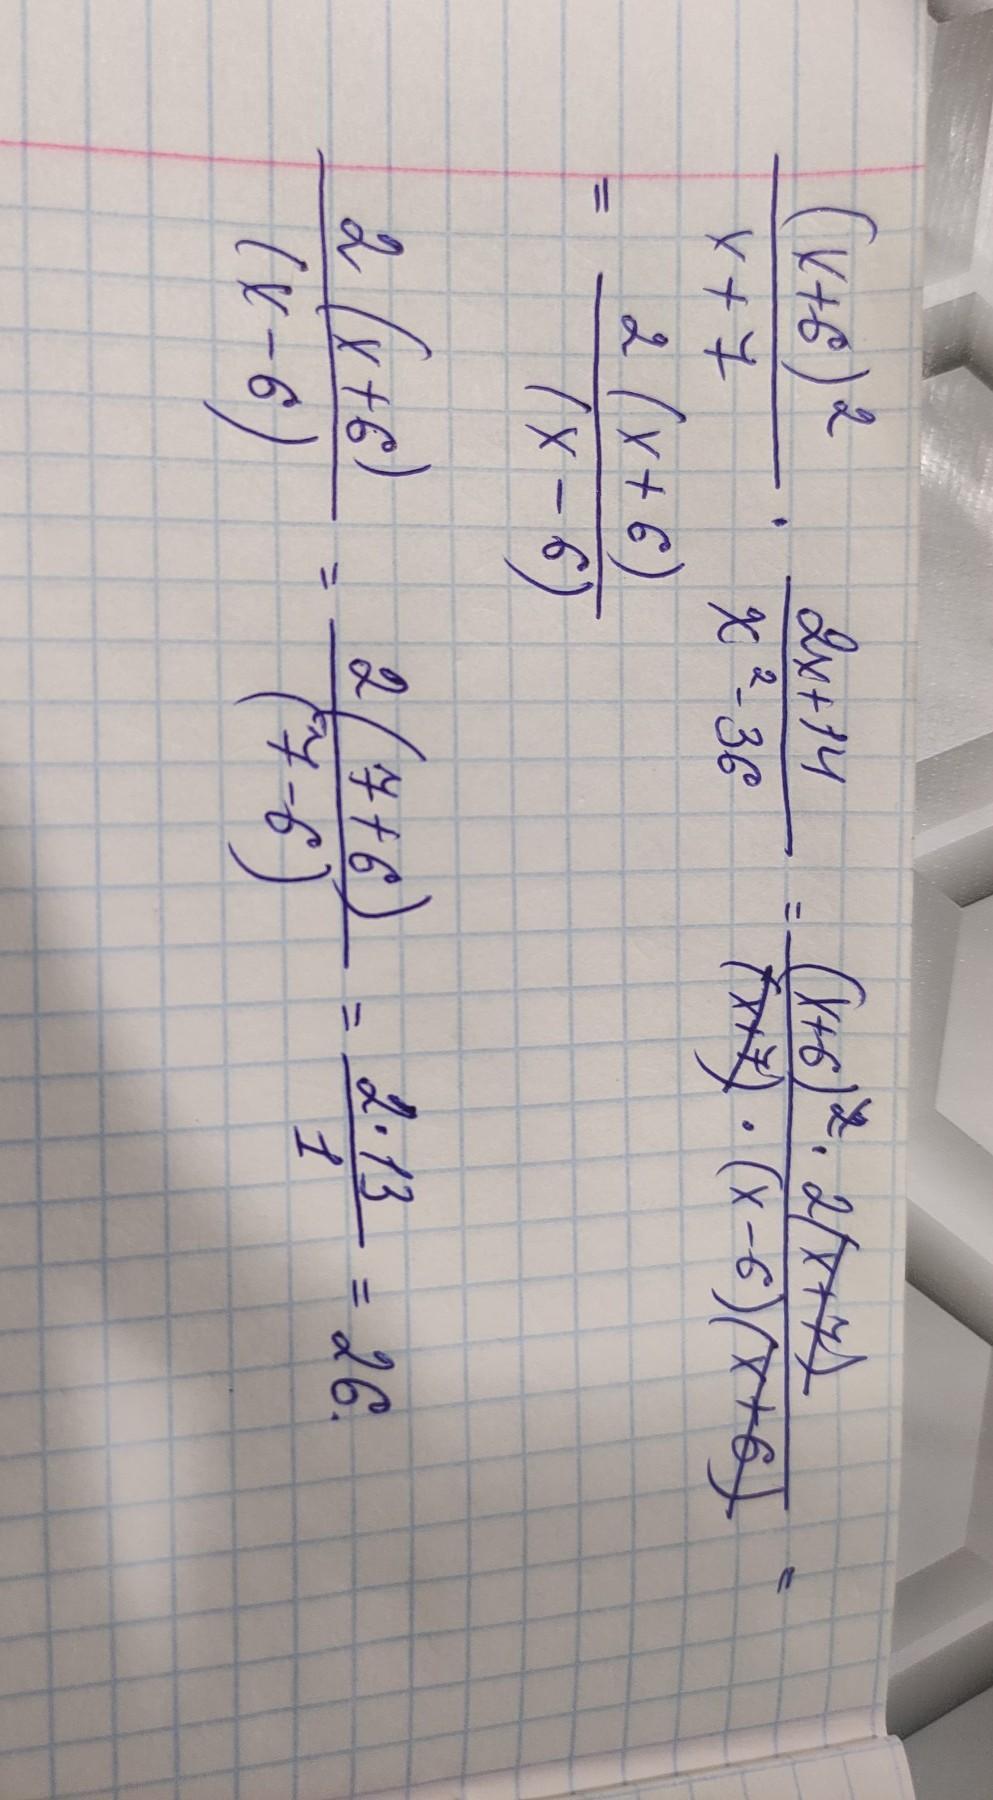 (x+6)² / x+7 · 2x+14 / x²-36 = (x+6)² · 2(x+7) / (x+7) · (x-6)(x+6) =
= 2(x+6) / (x-6)
2(x+6) / (x-6) = 2(7+6) / (7-6) = 2·13 / 1 = 26.